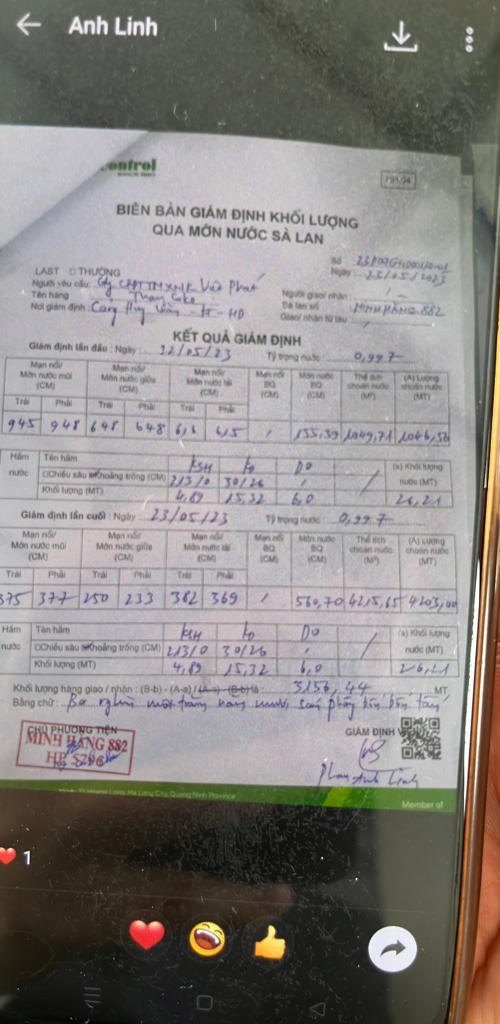 Anh Linh
control
BIÊN BẢN GIÁM ĐỊNH KHỐI LƯỢNG
QUA MỚN NƯỚC SÀ LAN
Số
LAST THƯỜNG
Ngày: 23/05/2023
Người yêu cầu: Cty CPTM XNK Việt Phát
Người giao/ nhận
Tên hàng : Than Coke
Sà lan số : MINH HẰNG 882
Nơi giám định: Cảng
HD
Giao/ nhận từ tàu
KẾT QUẢ GIÁM ĐỊNH
Giám định lần đầu : Ngày: 22/05/23 Tỷ trọng nước : 0,997
Mạn nổi/ Mớn nước mũi (CM) Mạn nổi/ Mớn nước giữa (CM) Mạn nổi/ Mớn nước lái (CM) Mạn nổi BQ (CM) Mớn nước BQ (CM) Thể tích choán nước (M³) (A) Lượng choán nước (MT)
Trái Phải Trái Phải Trái Phải
945 948 648 648 615 155,39 1049,71 1046,56
Hầm nước Tên hầm KSH Fo Do (a) Khối lượng nước (MT)
Chiều sâu Khoảng trống (CM) 213/0 30/26
Khối lượng (MT) 4,89 15,32 6,0 26,21
Giám định lần cuối : Ngày : 23/05/23 Tỷ trọng nước : 0,997
Mạn nổi/ Mớn nước mũi (CM) Mạn nổi/ Mớn nước giữa (CM) Mạn nổi/ Mớn nước lái (CM) Mạn nổi BQ (CM) Mớn nước BQ (CM) Thể tích choán nước (M³) (A) Lượng choán nước (MT)
Trái Phải Trái Phải Trái Phải
375 377 250 233 382 369 560,70 4215,65 4203,00
Hầm nước Tên hầm KSH Fo Do (a) Khối lượng nước (MT)
Chiều sâu Khoảng trống (CM) 213/0 30/26
Khối lượng (MT) 4,89 15,32 6,0 26,21
Khối lượng hàng giao / nhận : (B-b) - (A-a) / (A-a) - (B-b) là : 3156,44 MT
Bằng chữ : Ba nghìn một trăm năm mươi sáu phẩy bốn bốn tấn
CHỦ PHƯƠNG TIỆN
GIÁM ĐỊNH VIÊN
MINH HẰNG 882
HP 5296
Phan Anh Linh
Hạ Long City, Quang Ninh Province
Member of
1